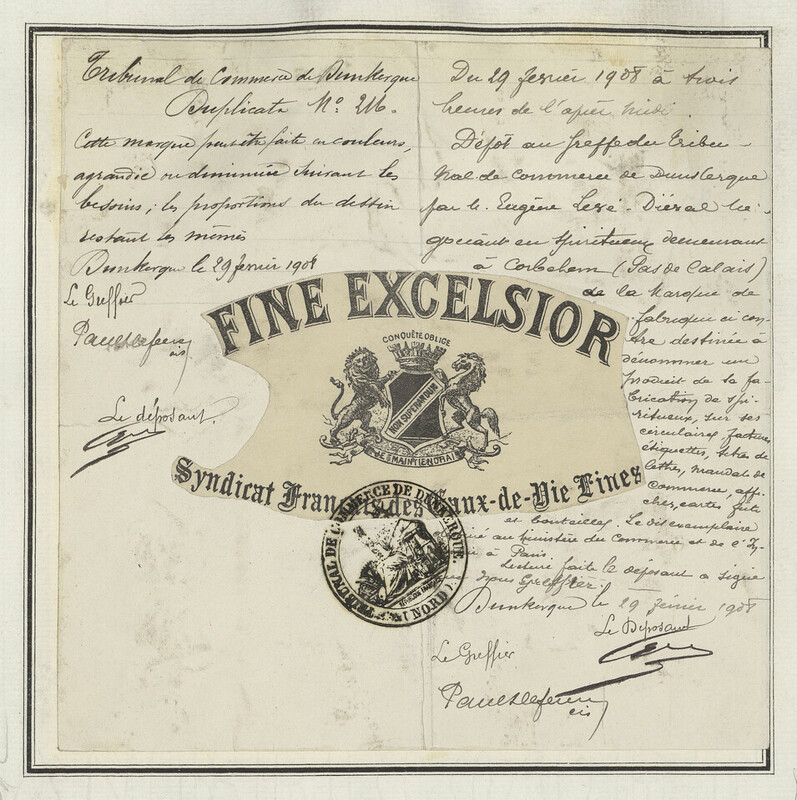 Tribunal de Commerce de Dunkerque
Duplicata N° 216.
Cette marque peut être faite en couleurs,
agrandie ou diminuée suivant les
besoins ; les proportions du dessin
restant les mêmes
Dunkerque le 29 février 1908
Le Greffier
Le déposant.
Du 29 février 1908 à trois
heures de l'après midi
Dépôt au Greffe du Tribu-
nal de Commerce de Dunkerque
par M. Eugène - né-
gociant en spiritueux demeurant
à Corbehem (Pas de Calais)
de la Marque de
fabrique ci con-
tre destinée à
dénommer un
produit de sa fa-
brication de spi-
ritueux, sur ses
circulaires, factures
étiquettes, têtes de
lettres, mandats de
commerce, affi-
ches, cartes, fûts
et bouteilles. Le dit exemplaire
au Ministère du Commerce et de l'In-
à Paris
Lecture faite le déposant a signé
nous Greffier.
Dunkerque le 29 février 1908
Le Déposant
Le Greffier
FINE EXCELSIOR
CONQUÊTE OBLIGE
NON SUPERANDUM
JE MAINTIENDRAI
Syndicat Français des Eaux-de-Vie Fines
TRIBUNAL DE COMMERCE DE DUNKERQUE.
(NORD)